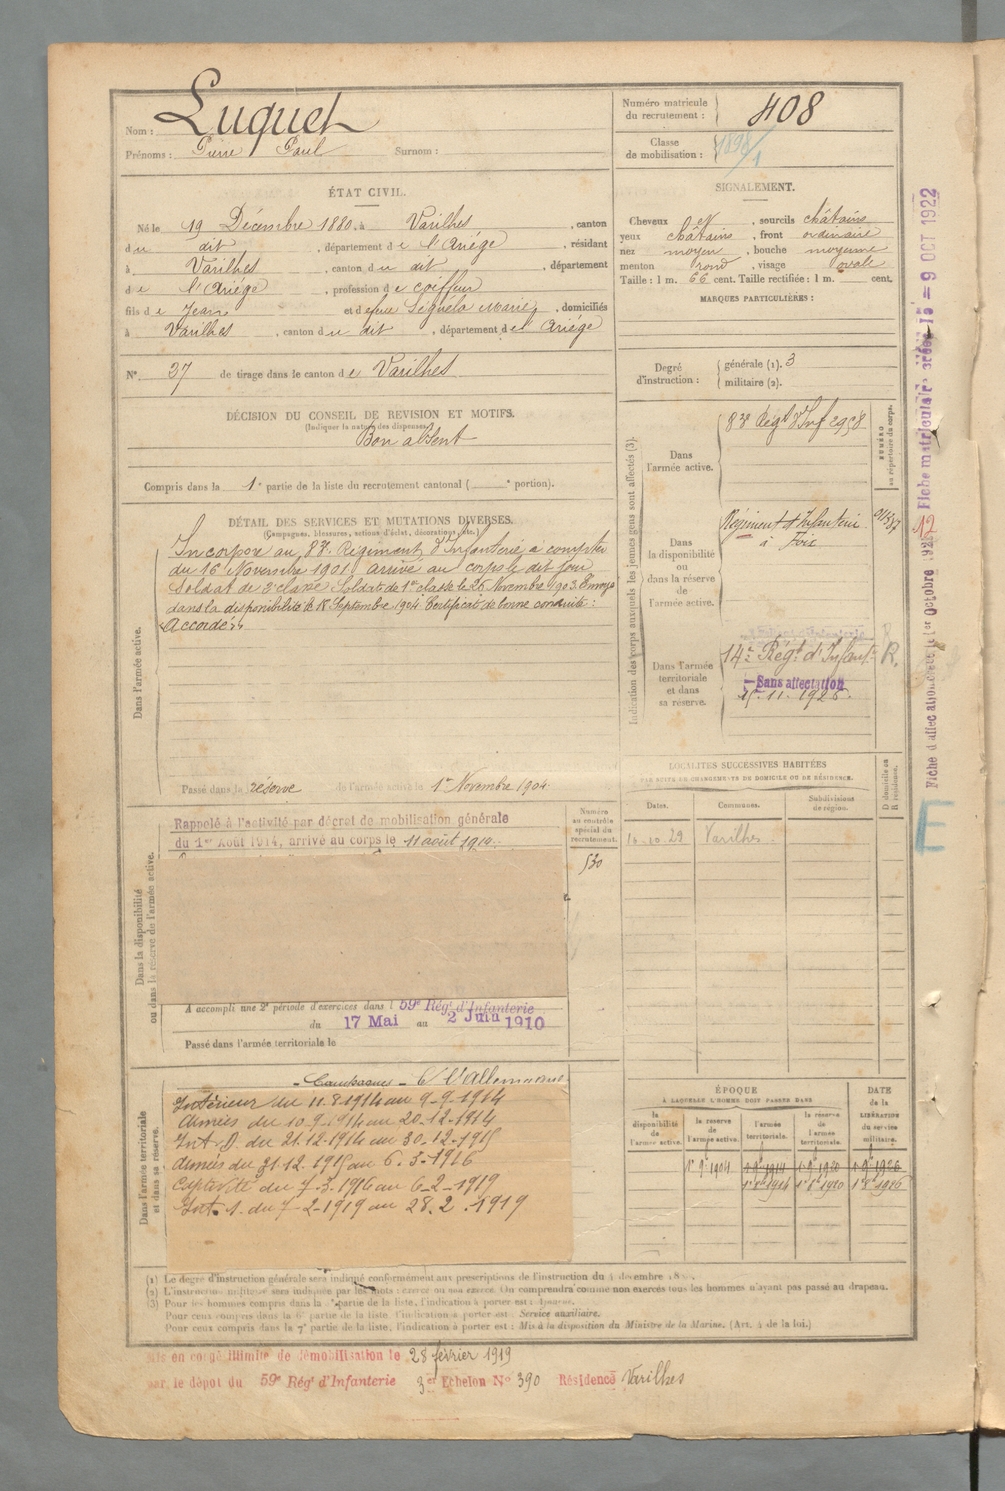 Nom : Luquet
Prénoms : Pierre Paul Surnom :
Numéro matricule du recrutement : 408
Classe de mobilisation : 1898/1
ÉTAT CIVIL.
Né le 19 Décembre 1880, à Varilhes, canton
du dit, département de l'Ariége, résidant
à Varilhes, canton du dit, département
de l'Ariége, profession de coiffeur
fils de Jean et de feue Séguéla Marie, domiciliés
à Varilhes, canton du dit, département de l'Ariége
N° 37 de tirage dans le canton de Varilhes
SIGNALEMENT.
Cheveux, sourcils châtains
yeux châtains, front ordinaire
nez moyen, bouche moyenne
menton rond, visage ovale
Taille : 1 m. 66 cent. Taille rectifiée : 1 m. cent.
MARQUES PARTICULIÈRES :
Degré d'instruction : générale (1). 3
militaire (2).
DÉCISION DU CONSEIL DE REVISION ET MOTIFS.
(Indiquer la nature des dispenses)
Bon absent
Compris dans la 1e partie de la liste du recrutement cantonal ( e portion).
DÉTAIL DES SERVICES ET MUTATIONS DIVERSES.
(Campagnes, blessures, actions d'éclat, décorations, etc.)
Dans l'armée active.
Incorporé au 83e Régiment d'Infanterie à compter
du 16 Novembre 1901, arrivé au corps le dit jour
soldat de 2e classe Soldat de 1re classe le 26 Novembre 1903. Envoyé
dans la disponibilité le 18 Septembre 1904 Certificat de bonne conduite :
"Accordé"
Passé dans la réserve de l'armée active le 1er Novembre 1904
Indication des corps auxquels les jeunes gens sont affectés (3).
NUMÉRO au répertoire du corps.
Dans l'armée active.
83e Régt d'Inf
Dans la disponibilité ou dans la réserve de l'armée active.
Régiment d'Infanterie
à Foix
Dans l'armée territoriale et dans sa réserve.
14e Régt d'Infantie R.
Sans affectation
15.11.1926
LOCALITÉS SUCCESSIVES HABITÉES
PAR SUITE DE CHANGEMENTS DE DOMICILE OU DE RÉSIDENCE.
Dates. Communes. Subdivisions de région. D domicile ou R résidence.
10.10.29 Varilhes
Dans la disponibilité ou dans la réserve de l'armée active.
Rappelé à l'activité par décret de mobilisation générale
du 1er Août 1914, arrivé au corps le 11 août 1914
Numéro au contrôle spécial du recrutement.
530
A accompli une 2e période d'exercices dans l 59e Régt d'Infanterie
du 17 Mai au 2 Juin 1910
Passé dans l'armée territoriale le
Dans l'armée territoriale et dans sa réserve.
- Campagnes - C/ l'Allemagne
Intérieur du 11.8.1914 au 9-9-1914
Armées du 10-9-1914 au 20-12-1914
Int. D. du 21.12.1914 au 30-12-1915
Armées du 31.12.1915 au 6.3-1916
Captivité du 7-3.1916 au 6-2-1919
Int. S. du 7-2-1919 au 28.2.1919
ÉPOQUE
À LAQUELLE L'HOMME DOIT PASSER DANS
la disponibilité de l'armée active.
la réserve de l'armée active.
l'armée territoriale.
la réserve de l'armée territoriale.
DATE de la LIBÉRATION du service militaire.
1er 9e 1904
(1) Le degré d'instruction générale sera indiqué conformément aux prescriptions de l'instruction du 4 décembre
(2) L'instruction militaire sera indiquée par les mots : exercé ou non exercé. On comprendra comme non exercés tous les hommes n'ayant pas passé au drapeau.
(3) Pour les hommes compris dans la partie de la liste, l'indication à porter est :
Pour ceux compris dans la 6e partie de la liste, l'indication à porter est : Service auxiliaire.
Pour ceux compris dans la 7e partie de la liste, l'indication à porter est : Mis à la disposition du Ministre de la Marine. (Art. 4 de la loi.)
Mis en congé illimité de démobilisation le 28 février 1919
par le dépôt du 59e Régt d'Infanterie 3e Echelon N° 390 Résidence Varilhes
Fiche matriculaire
9 OCT 1922
E